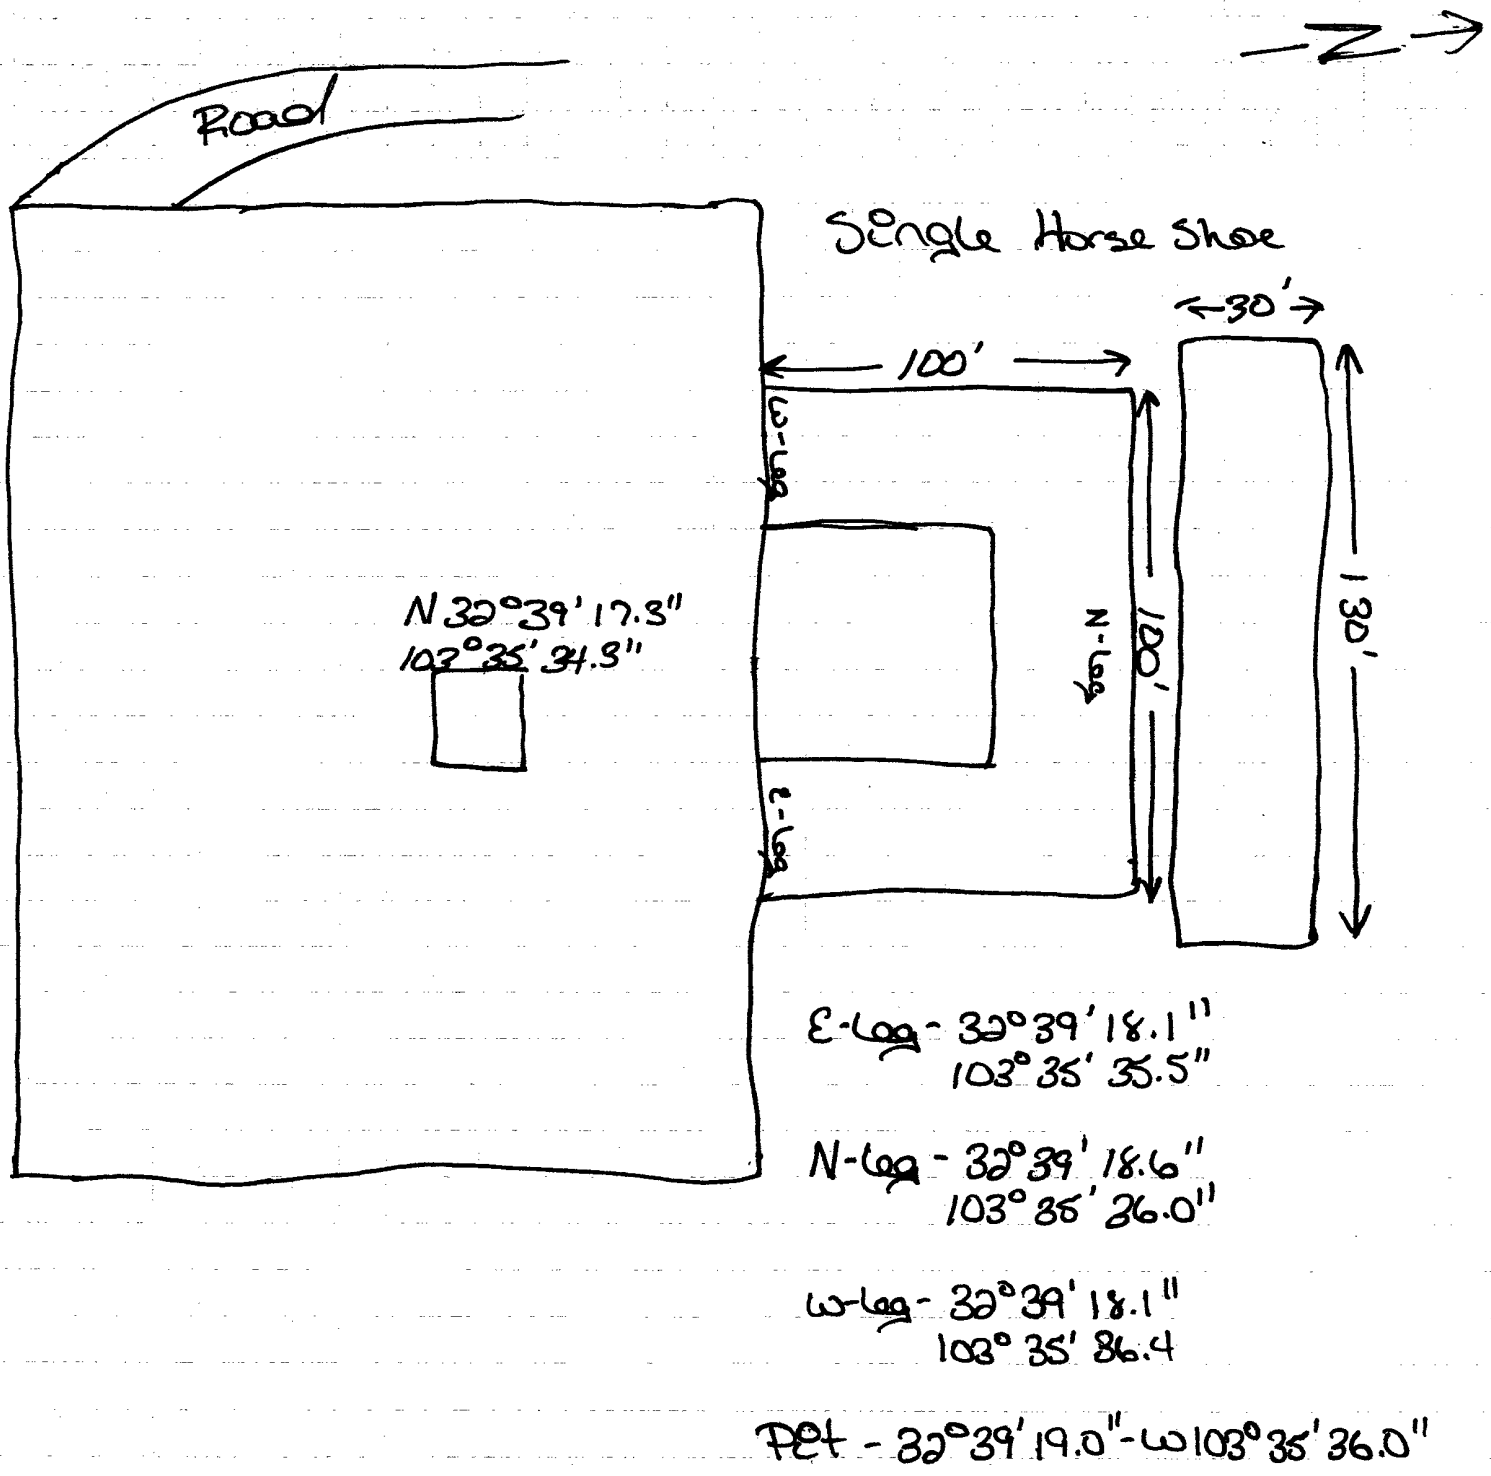 N
Road
Single Horse Shoe
30'
100'
W-Leg
N 32°39'17.3"
103°35'34.3"
N-Leg
100'
130'
E-Leg
E-Leg - 32°39'18.1"
103°35'35.5"
N-Leg - 32°39'18.6"
103°35'36.0"
W-Leg - 32°39'18.1"
103°35'36.4
Pit - 32°39'19.0"-W103°35'36.0"